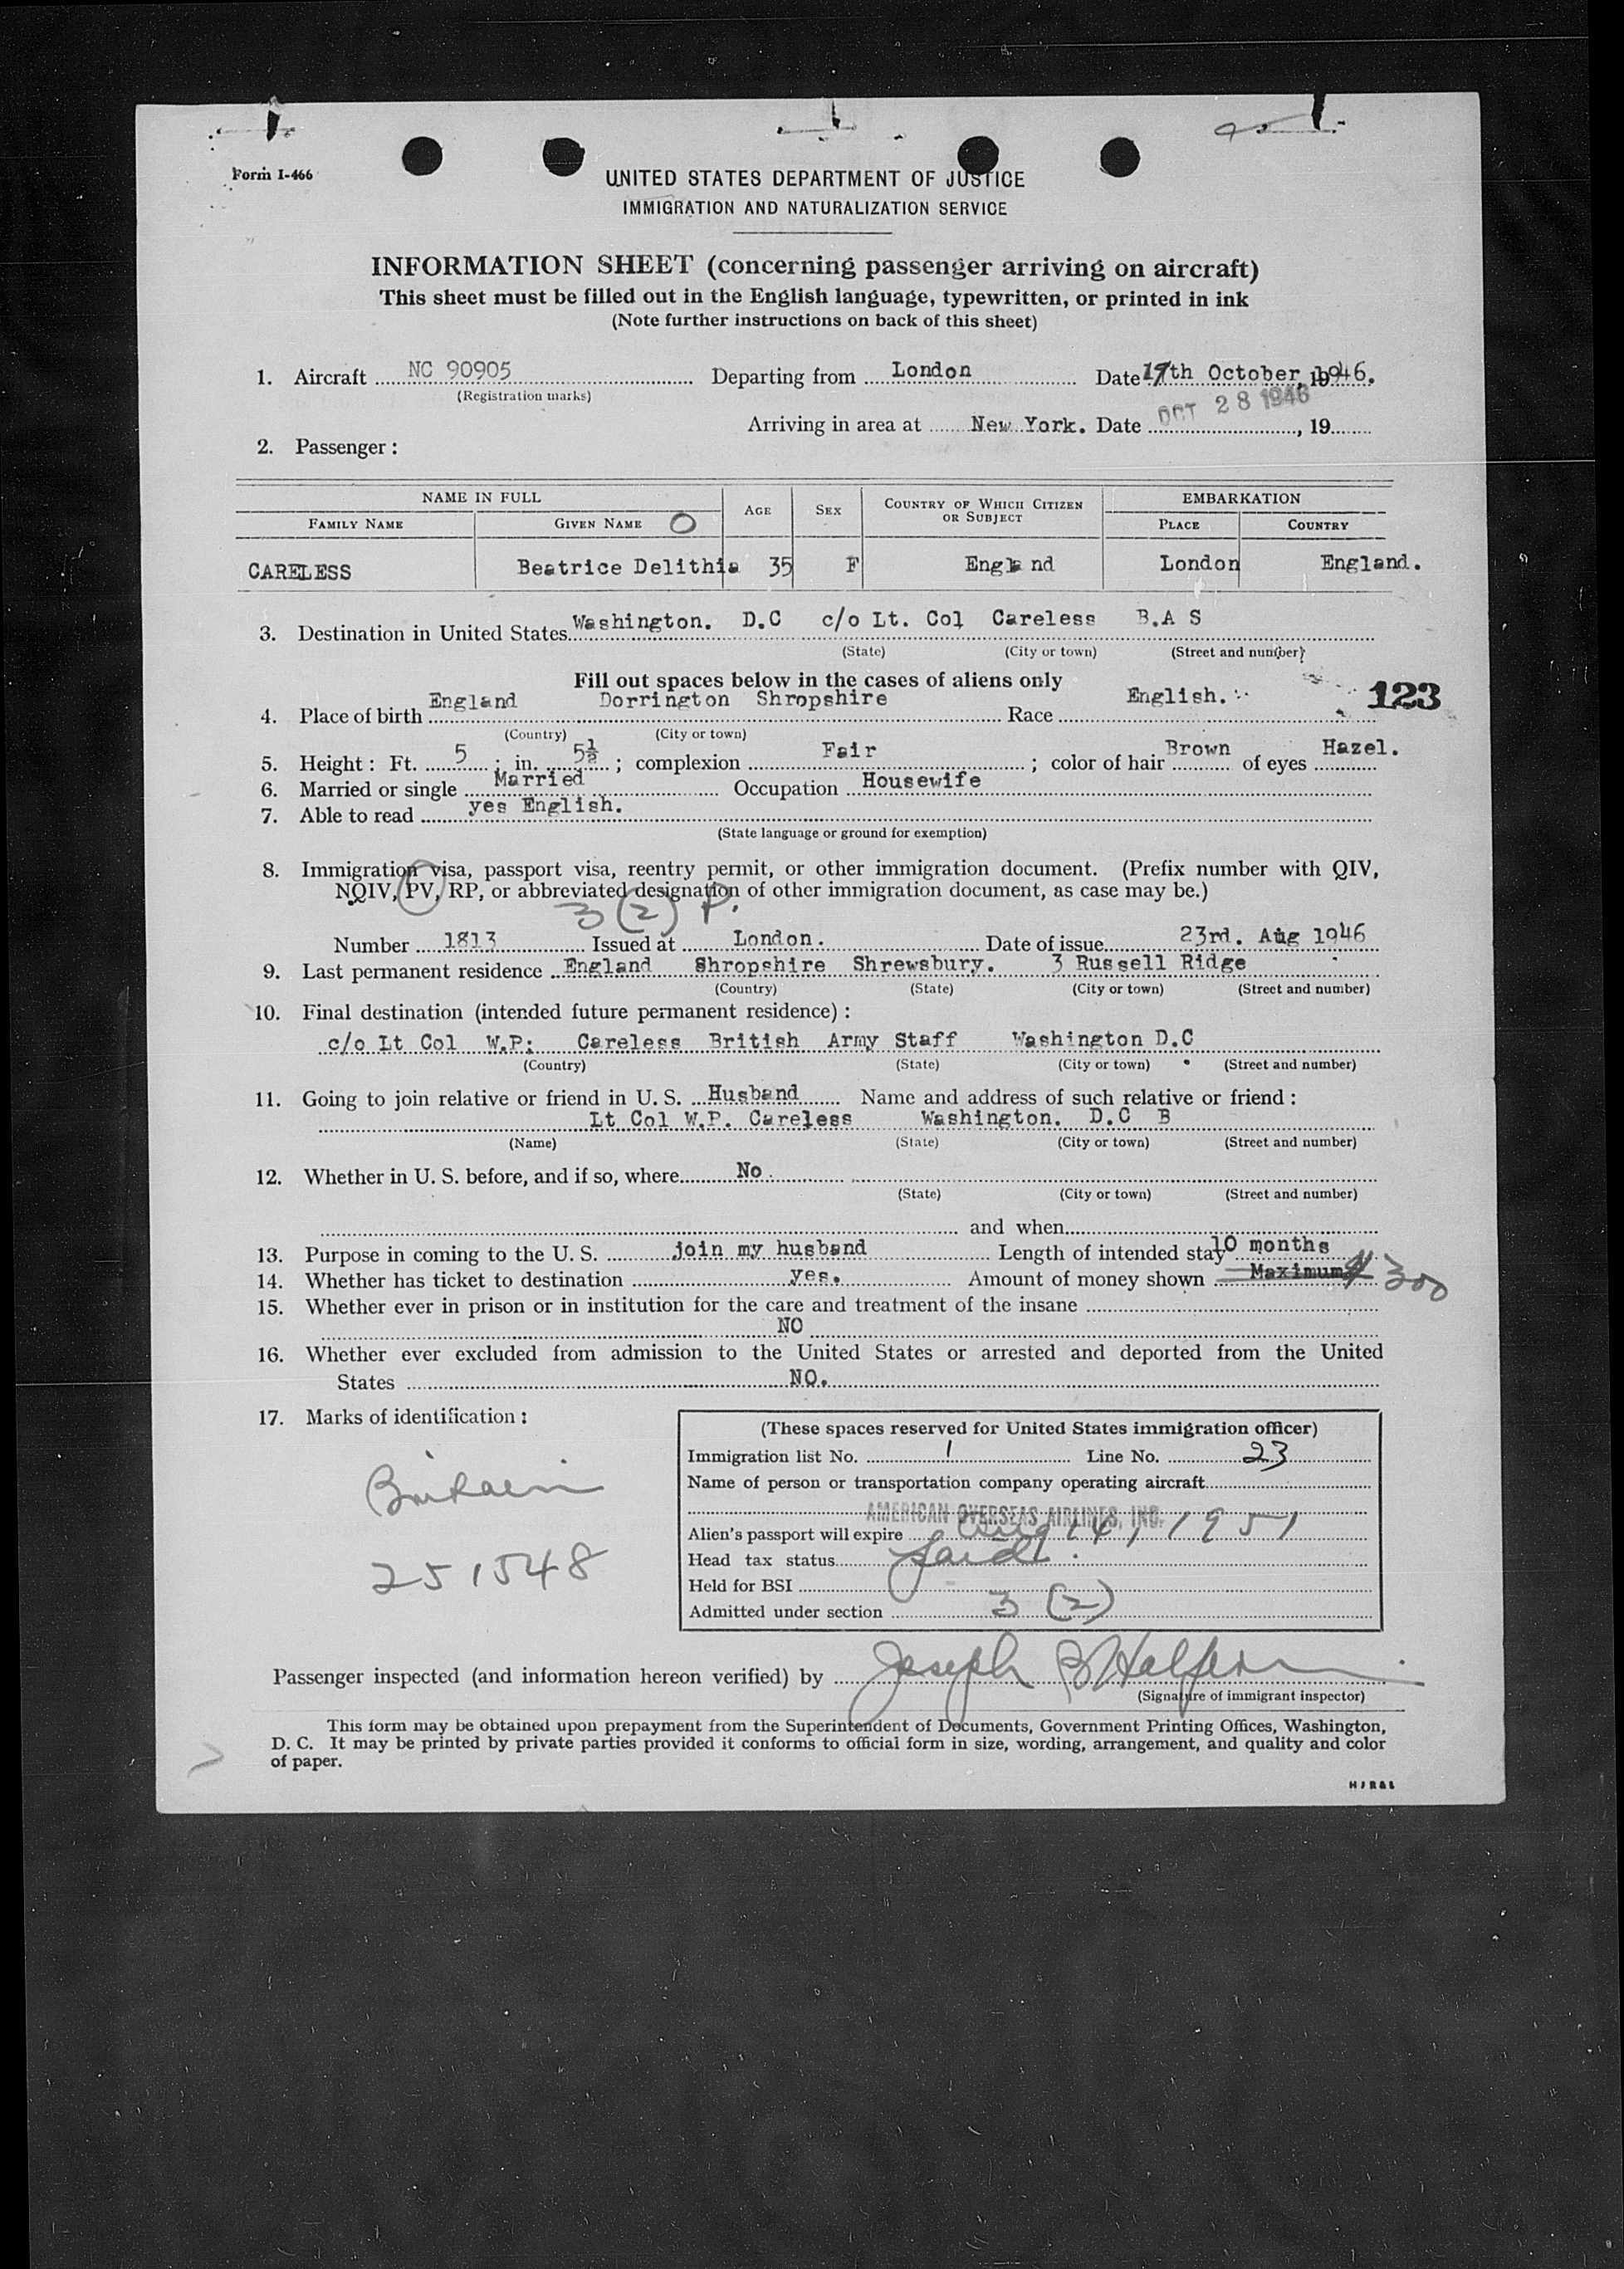 Form I-466
UNITED STATES DEPARTMENT OF JUSTICE
IMMIGRATION AND NATURALIZATION SERVICE
INFORMATION SHEET (concerning passenger arriving on aircraft)
This sheet must be filled out in the English language, typewritten, or printed in ink
(Note further instructions on back of this sheet)
1. Aircraft NC 90905 Departing from London Date 17th October, 1946.
(Registration marks)
OCT 28 1946
Arriving in area at New York. Date , 19
2. Passenger:
NAME IN FULL AGE SEX COUNTRY OF WHICH CITIZEN OR SUBJECT EMBARKATION
FAMILY NAME GIVEN NAME PLACE COUNTRY
CARELESS Beatrice Delithia 35 F England London England.
3. Destination in United States Washington. D.C c/o Lt. Col Careless B.A S
(State) (City or town) (Street and number)
Fill out spaces below in the cases of aliens only
123
4. Place of birth England Dorrington Shropshire Race English.
(Country) (City or town)
5. Height: Ft. 5 ; in. 5½ ; complexion Fair ; color of hair Brown of eyes Hazel.
6. Married or single Married Occupation Housewife
7. Able to read yes English.
(State language or ground for exemption)
8. Immigration visa, passport visa, reentry permit, or other immigration document. (Prefix number with QIV,
NQIV, PV, RP, or abbreviated designation of other immigration document, as case may be.)
3 (2) P.
Number 1813 Issued at London. Date of issue 23rd. Aug 1946
9. Last permanent residence England Shropshire Shrewsbury. 3 Russell Ridge
(Country) (State) (City or town) (Street and number)
10. Final destination (intended future permanent residence):
c/o Lt Col W.P: Careless British Army Staff Washington D.C
(Country) (State) (City or town) (Street and number)
11. Going to join relative or friend in U. S. Husband Name and address of such relative or friend:
Lt Col W.P. Careless Washington. D.C B
(Name) (State) (City or town) (Street and number)
12. Whether in U. S. before, and if so, where No.
(State) (City or town) (Street and number)
and when
13. Purpose in coming to the U. S. join my husband Length of intended stay 10 months
14. Whether has ticket to destination yes. Amount of money shown Maximum $300
15. Whether ever in prison or in institution for the care and treatment of the insane
NO
16. Whether ever excluded from admission to the United States or arrested and deported from the United
States NO.
17. Marks of identification:
Britain
251548
(These spaces reserved for United States immigration officer)
Immigration list No. 1 Line No. 23
Name of person or transportation company operating aircraft
AMERICAN OVERSEAS AIRLINES, INC.
Alien's passport will expire Aug 14, 1951
Head tax status paid.
Held for BSI
Admitted under section 3 (2)
Passenger inspected (and information hereon verified) by Joseph B Halfern
(Signature of immigrant inspector)
This form may be obtained upon prepayment from the Superintendent of Documents, Government Printing Offices, Washington,
D. C. It may be printed by private parties provided it conforms to official form in size, wording, arrangement, and quality and color
of paper.